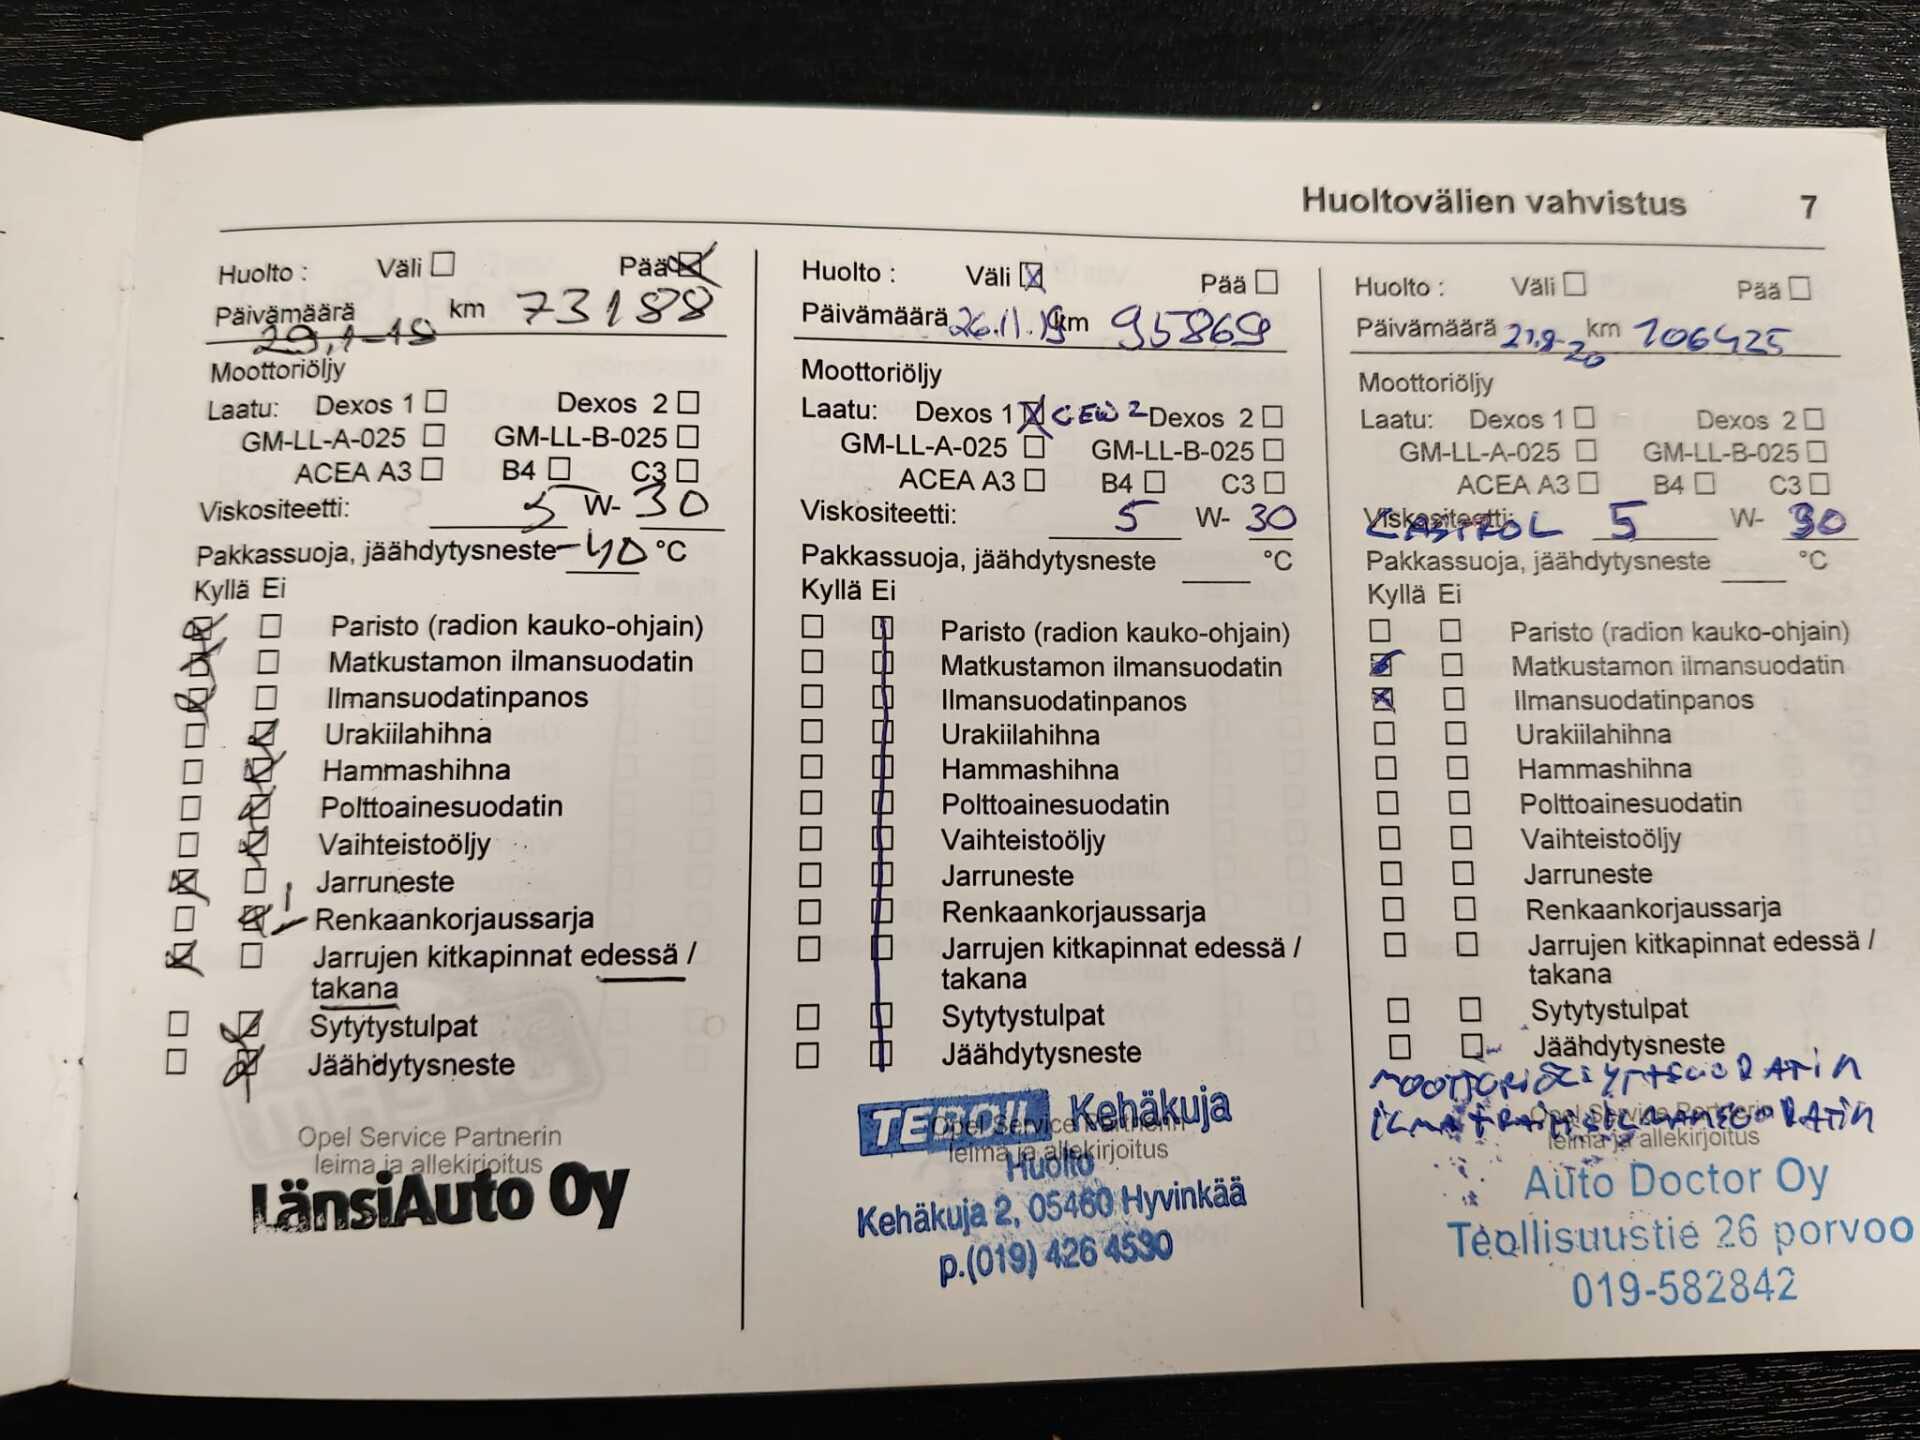 Huoltovälien vahvistus 7
Huolto : Väli Pää
Päivämäärä km 73188
29.1-18
Moottoriöljy
Laatu: Dexos 1 Dexos 2
GM-LL-A-025 GM-LL-B-025
ACEA A3 B4 C3
Viskositeetti: 5 W- 30
Pakkassuoja, jäähdytysneste -40 °C
Kyllä Ei
Paristo (radion kauko-ohjain)
Matkustamon ilmansuodatin
Ilmansuodatinpanos
Urakiilahihna
Hammashihna
Polttoainesuodatin
Vaihteistoöljy
Jarruneste
Renkaankorjaussarja
Jarrujen kitkapinnat edessä /
takana
Sytytystulpat
Jäähdytysneste
Opel Service Partnerin
leima ja allekirjoitus
LänsiAuto Oy
Huolto : Väli Pää
Päivämäärä 26.11.19 km 95869
Moottoriöljy
Laatu: Dexos 1 GEN 2 Dexos 2
GM-LL-A-025 GM-LL-B-025
ACEA A3 B4 C3
Viskositeetti: 5 W- 30
Pakkassuoja, jäähdytysneste °C
Kyllä Ei
Paristo (radion kauko-ohjain)
Matkustamon ilmansuodatin
Ilmansuodatinpanos
Urakiilahihna
Hammashihna
Polttoainesuodatin
Vaihteistoöljy
Jarruneste
Renkaankorjaussarja
Jarrujen kitkapinnat edessä /
takana
Sytytystulpat
Jäähdytysneste
TEBOIL Kehäkuja
Opel Service Partnerin
leima ja allekirjoitus
Huolto
Kehäkuja 2, 05460 Hyvinkää
p.(019) 426 4590
Huolto : Väli Pää
Päivämäärä km 106425
Moottoriöljy
Laatu: Dexos 1 Dexos 2
GM-LL-A-025 GM-LL-B-025
ACEA A3 B4 C3
Viskositeetti: CASTROL 5 W- 30
Pakkassuoja, jäähdytysneste °C
Kyllä Ei
Paristo (radion kauko-ohjain)
Matkustamon ilmansuodatin
Ilmansuodatinpanos
Urakiilahihna
Hammashihna
Polttoainesuodatin
Vaihteistoöljy
Jarruneste
Renkaankorjaussarja
Jarrujen kitkapinnat edessä /
takana
Sytytystulpat
Jäähdytysneste
Opel Service Partnerin
leima ja allekirjoitus
Auto Doctor Oy
Teollisuustie 26 porvoo
019-582842